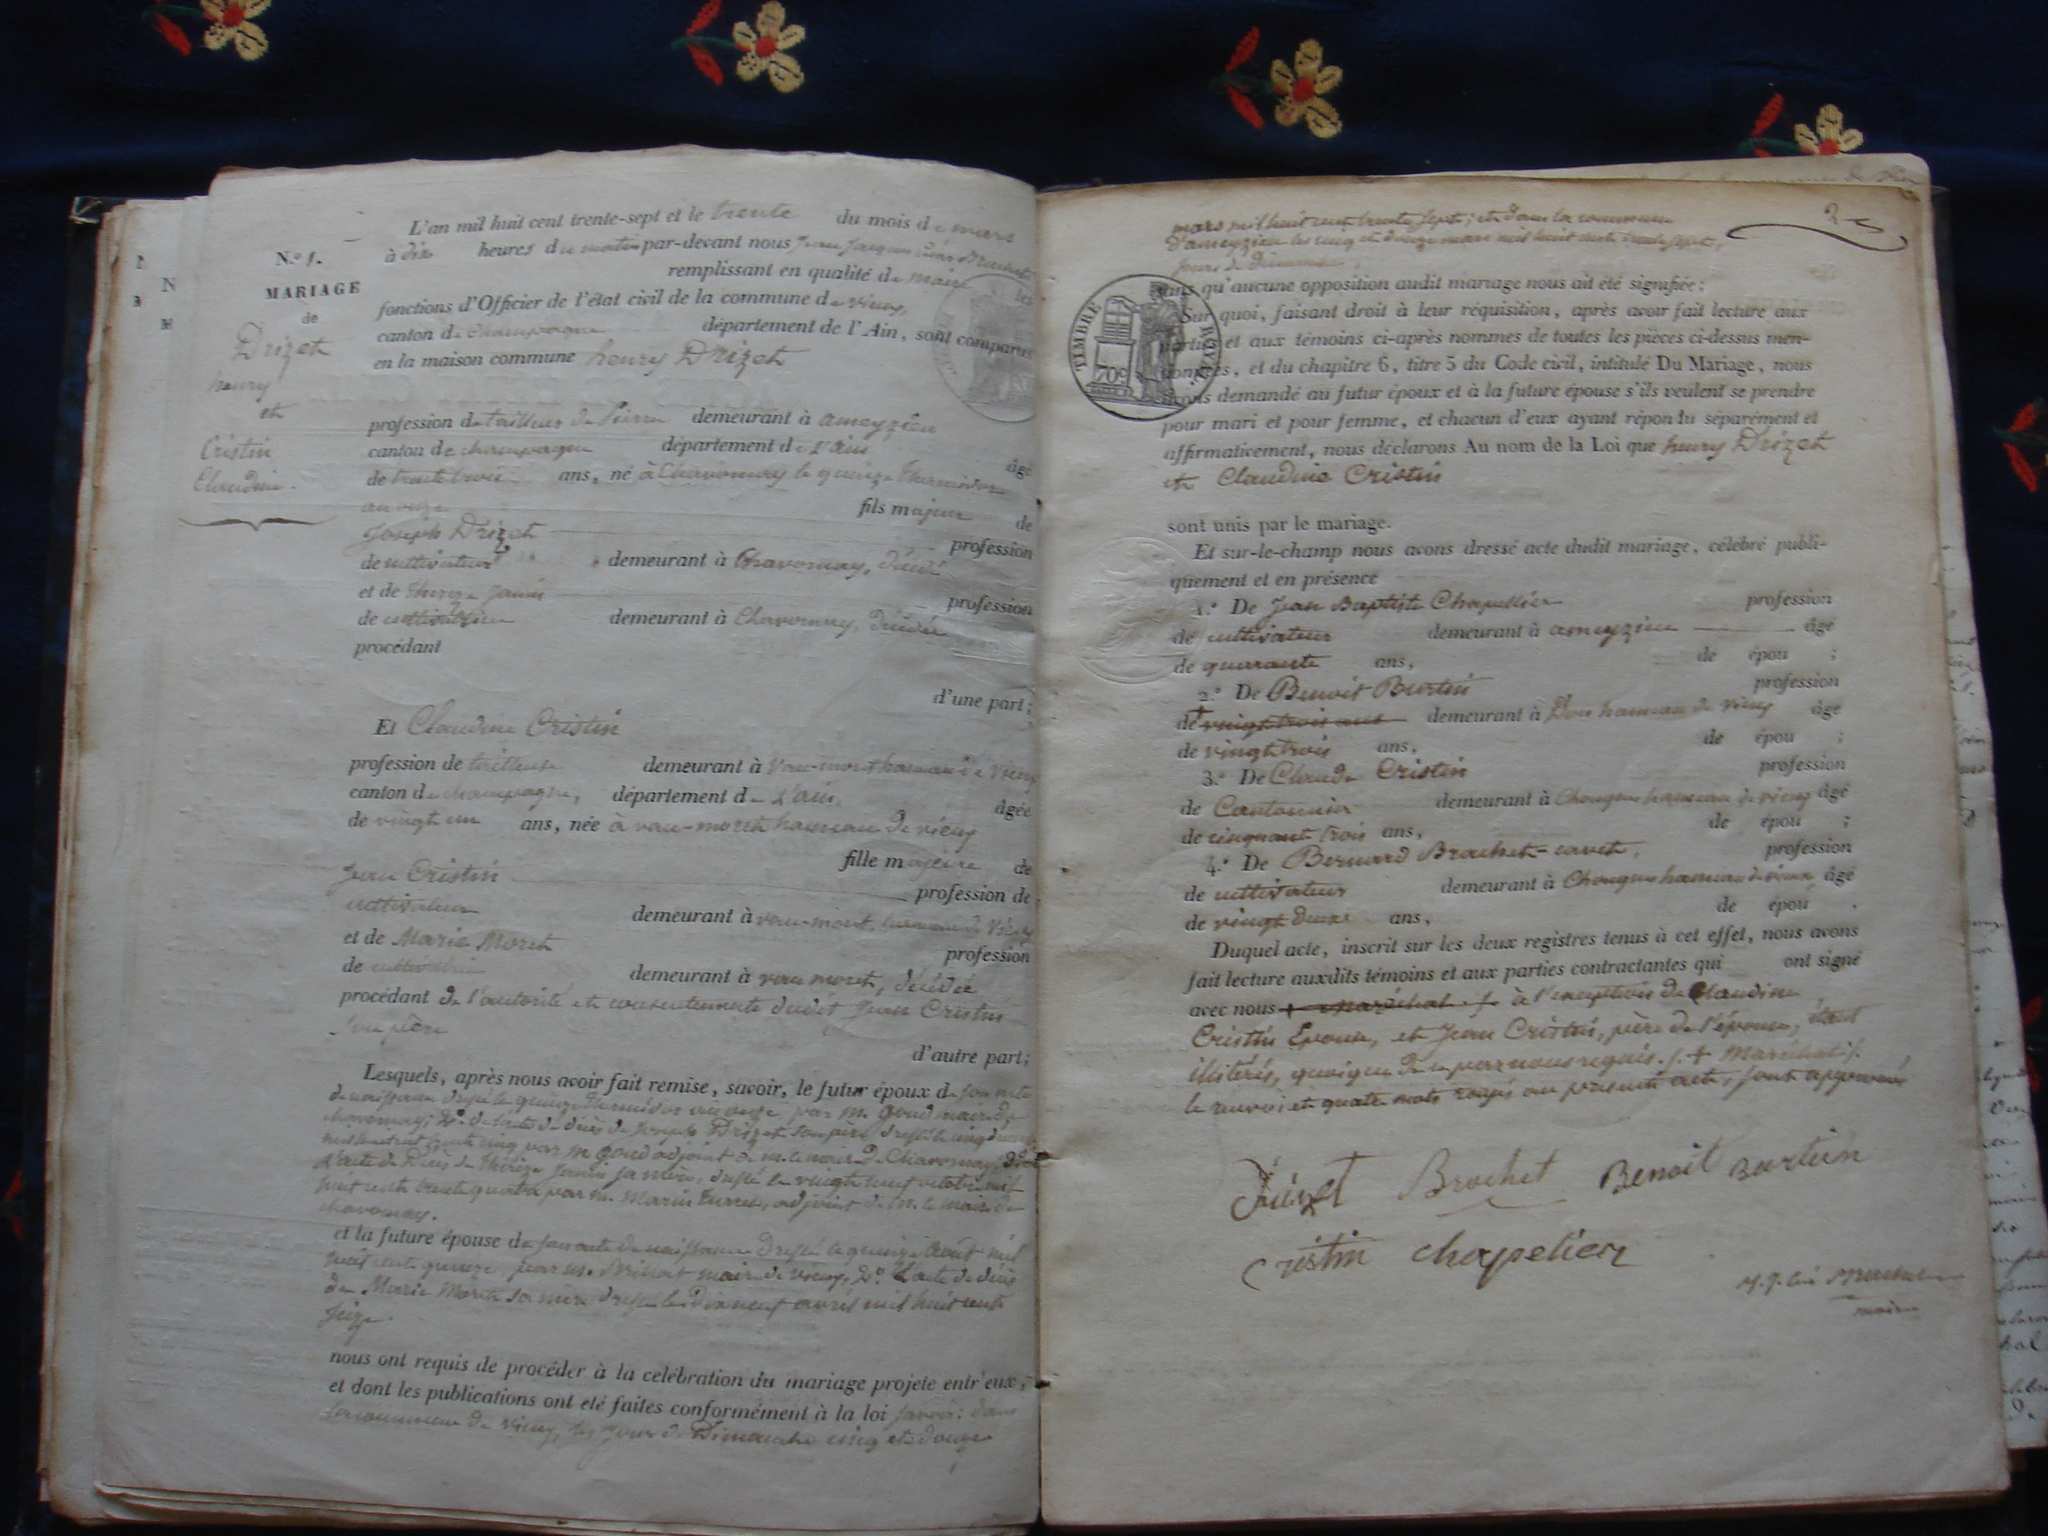 N.º 1.
MARIAGE
de
Drizet
henry
et
Cristin
Claudine.
L'an mil huit cent trente-sept et le trente du mois de mars
à dix heures du matin par-devant nous jean jacques
remplissant en qualité de maire les
fonctions d'Officier de l'état civil de la commune de vieux,
canton de champagne département de l'Ain, sont comparus
en la maison commune henry Drizet
profession de tailleur de Pierre demeurant à ameyzieu
canton de champagne département de l'ain âgé
de trente trois ans, né à Chavornay le quinze thermidor
an onze fils majeur de
Joseph Drizet profession
de cultivateur demeurant à Chavornay, décédé
et de thérèse Janin profession
de cultivatrice demeurant à Chavornay, décédée
procédant
d'une part;
Et Claudine Cristin
profession de demeurant à vau-moret hameau de vieux
canton de champagne, département de l'ain, âgée
de vingt un ans, née à vau-moret hameau de vieux
fille majeure de
Jean Cristin profession de
cultivateur demeurant à vau-moret, hameau de vieux
et de Marie Moret profession
de cultivatrice demeurant à vau moret, décédée
procédant de l'autorité et consentement dudit Jean Cristin
son père
d'autre part;
Lesquels, après nous avoir fait remise, savoir, le futur époux de son acte
de naissance dressé le quinze thermidor an onze par m. goud maire de
chavornay; 2º. de l'acte de décès de Joseph Drizet son père dressé le cinq
mil huit cent trente cinq par m goud adjoint de m. le maire de Chavornay,
l'acte de décès de thérèse Janin sa mère, dressé le vingt neuf octobre mil
huit cent trente quatre par m. Marin adjoint de m. le maire de
chavornay.
et la future épouse de son acte de naissance dressé le quinze août mil
huit cent quinze par m. maire de vieux, 2º. l'acte de décès
de Marie Moret sa mère dressé le dix neuf avril mil huit cent
seize.
nous ont requis de procéder à la celébration du mariage projete entr'eux,
et dont les publications ont été faites conformément à la loi savoir: dans
la commune de vieux, les jours de Dimanche cinq et douze
2
mars mil huit cent trente sept; et dans la commune
d'ameyzieu les cinq et douze mars mil huit cent trente sept,
jours de Dimanche
sans qu'aucune opposition audit mariage nous ait été signifiée;
TIMBRE ROYAL
70c
Sur quoi, faisant droit à leur réquisition, après avoir fait lecture aux
parties et aux témoins ci-après nommes de toutes les pièces ci-dessus men-
tionnées, et du chapitre 6, titre 5 du Code civil, intitulé Du Mariage, nous
avons demandé au futur époux et à la future épouse s'ils veulent se prendre
pour mari et pour femme, et chacun d'eux ayant répondu séparément et
affirmaticement, nous déclarons Au nom de la Loi que henry Drizet
et Claudine Cristin
sont unis par le mariage.
Et sur-le-champ nous avons dressé acte dudit mariage, célébré publi-
quement et en présence
1.º De Jean Baptiste Chapellier profession
de cultivateur demeurant à ameyzieu âgé
de quarante ans, de épou ;
2.º De Benoit Burtin profession
de vingt trois ans demeurant à Don hameau de vieux âgé
de vingt trois ans, de épou ;
3.º De Claude Cristin profession
de Cantonnier demeurant à Chongnes hameau de vieux âgé
de cinquante trois ans, de épou ;
4.º De Bernard Brachet-cavet, profession
de cultivateur demeurant à Chongnes hameau de vieux âgé
de vingt deux ans, de épou .
Duquel acte, inscrit sur les deux registres tenus à cet effet, nous avons
fait lecture auxdits témoins et aux parties contractantes qui ont signé
avec nous + maréchal à l'exception de Claudine
Cristin Epouse, et Jean Cristin, père de l'épouse, étant
illitérés, quoique de ce par nous requis. + Maréchal
le renvoi et quatre mots rayés au présent acte, sont approuvés
Drizet Brochet Benoit Burtin
Cristin chapelier
maire